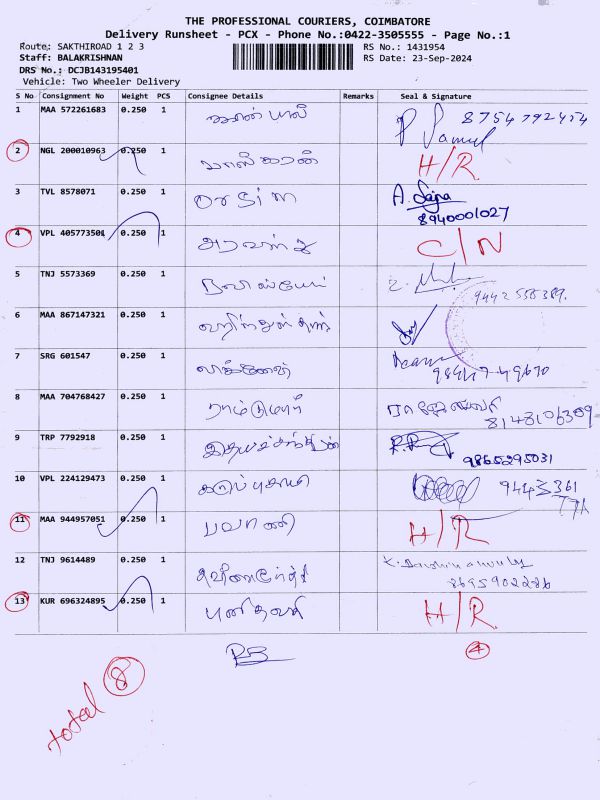 THE PROFESSIONAL COURIERS, COIMBATORE
Delivery Runsheet - PCX - Phone No.:0422-3505555 - Page No.:1
Route: SAKTHIROAD 1 2 3
RS No.: 1431954
Staff: BALAKRISHNAN
RS Date: 23-Sep-2024
DRS No.: DCJB143195401
Vehicle: Two Wheeler Delivery
S No Consignment No Weight PCS Consignee Details Remarks Seal & Signature
1 MAA 572261683 0.250 1 ஜான் பால் 8754792454
2 NGL 200010963 0.250 1 பாஸ்கரன் H/R
3 TVL 8578071 0.250 1
8940001027
4 VPL 405773501 0.250 1 அரவிந்த் C/N
5 TNJ 5573369 0.250 1
6 MAA 867147321 0.250 1
7 SRG 601547 0.250 1
8 MAA 704768427 0.250 1 ராம்குமார்
9 TRP 7792918 0.250 1 9865295031
10 VPL 224129473 0.250 1 கருப்புசாமி
11 MAA 944957051 0.250 1 பவானி H/R
12 TNJ 9614489 0.250 1
8695902286
13 KUR 696324895 0.250 1 புனிதவதி H/R
4
total 8